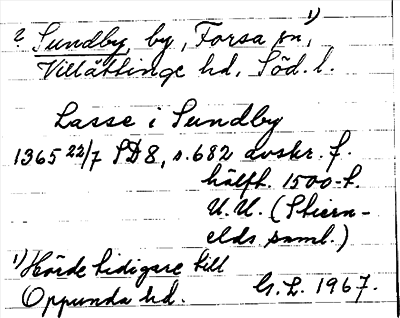 ? Sundby, by, Forsa sn, 1)
Villåttinge hd, Söd. l.
Lasse i Sundby
1365 22/7 SD 8, s. 682 avskr. f.
hälft. 1500-t.
U.U. (Stiern-
elds saml.)
1) Hörde tidigare till
Oppunda hd. G. L. 1967.